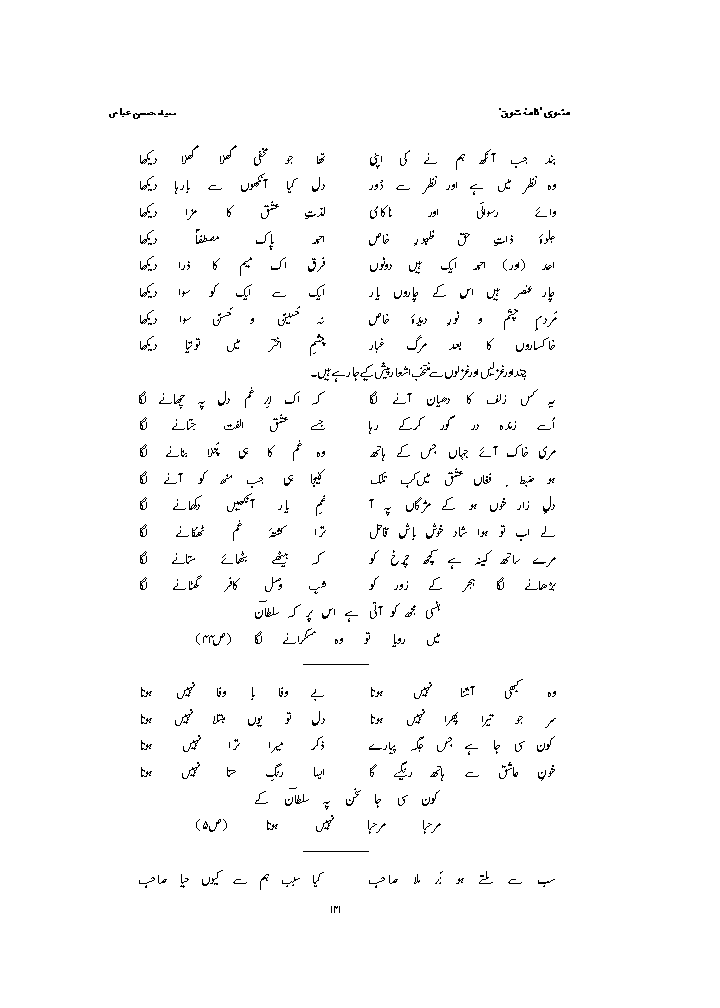 مثنوی 'نامۂ شوق' سید حسن عباس
بند جب آنکھ ہم نے کی اپنی تھا جو مخفی کُھلا کُھلا دیکھا
وہ نظر میں ہے اور نظر سے دُور دل کیا آنکھوں سے بارہا دیکھا
وائے رسوائی اور ناکامی لذتِ عشق کا مزا دیکھا
جلوۂ ذاتِ حق ظہورِ خاص احمد پاک مصطفیٰؐ دیکھا
احد (اور) احمد ایک ہیں دونوں فرق اک میم کا ذرا دیکھا
چار عنصر ہیں اس کے چاروں یار ایک سے ایک کو سوا دیکھا
مُردمِ چشم و نورِ دیدۂ خاص نہ حُسینی و حَسنی سوا دیکھا
خاکساروں کا بعد مرگ غبار چشمِ اختر میں توتیا دیکھا
چند اور غزلیں اور غزلوں سے منتخب اشعار پیش کیے جا رہے ہیں۔
یہ کس زلف کا دھیان آنے لگا کہ اک ابرِ غم دل پہ چھانے لگا
اُسے زندہ در گور کرکے رہا جسے عشق الفت جتانے لگا
مری خاک آئے جہاں جس کے ہاتھ وہ غم کا ہی پُتلا بنانے لگا
ہو ضبط فغاں عشق میں کب تلک کلیجا ہی جب منھ کو آنے لگا
دلِ زار خوں ہو کے مژگاں پہ آ غمِ یار آنکھیں دکھانے لگا
لے اب تو ہوا شاد خوش باش قاتل ترا کشتۂ غم ٹھکانے لگا
مرے ساتھ کینہ ہے کچھ چرخ کو کہ بیٹھے بٹھائے ستانے لگا
بڑھانے لگا ہجر کے زور کو شبِ وصل کافر گھٹانے لگا
ہنسی مجھ کو آتی ہے اس پر کہ سلطانؔ
میں رویا تو وہ مسکرانے لگا (ص۴۴)
وہ کبھی آشنا نہیں ہوتا بے وفا با وفا نہیں ہوتا
سر جو تیرا پھرا نہیں ہوتا دل تو یوں مبتلا نہیں ہوتا
کون سی جا ہے جس جگہ پیارے ذکر میرا ترا نہیں ہوتا
خونِ عاشق سے ہاتھ رنگیے گا ایسا رنگِ حنا نہیں ہوتا
کون سی جا سخن پہ سلطانؔ کے
مرحبا مرحبا نہیں ہوتا (ص۵)
سب سے ملتے ہو بَر ملا صاحب کیا سبب ہم سے کیوں حیا صاحب
۱۳۱